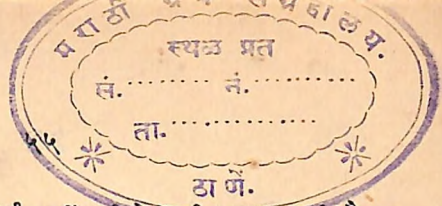 मराठी ग्रंथ संग्रहालय.
स्थळ प्रत
सं. ........... नं. ...........
ता. ...............
ठाणें.